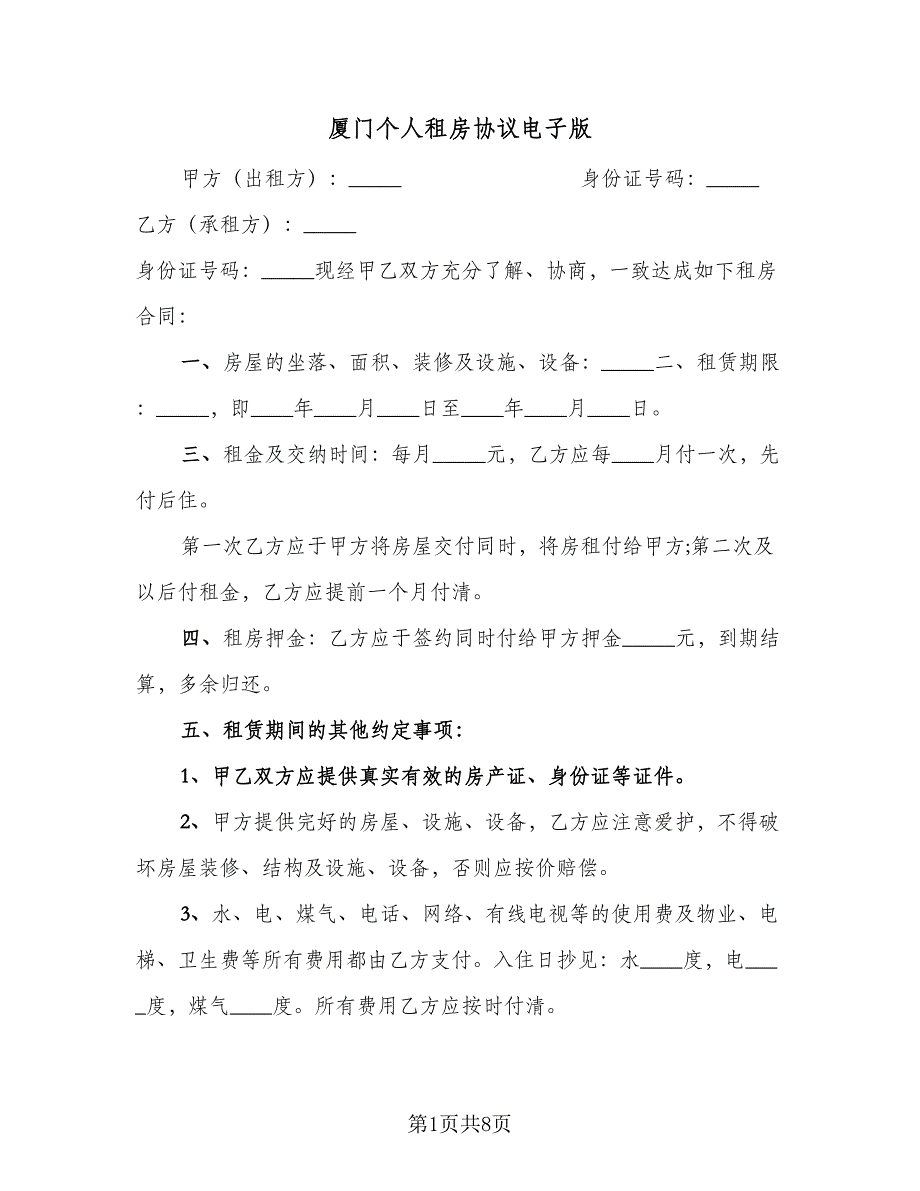 厦门个人租房协议电子版
甲方（出租方）：_____ 身份证号码：_____
乙方（承租方）：_____
身份证号码：_____现经甲乙双方充分了解、协商，一致达成如下租房
合同：
一、房屋的坐落、面积、装修及设施、设备：_____二、租赁期限
：_____，即____年____月____日至____年____月____日。
三、租金及交纳时间：每月_____元，乙方应每____月付一次，先
付后住。
第一次乙方应于甲方将房屋交付同时，将房租付给甲方;第二次及
以后付租金，乙方应提前一个月付清。
四、租房押金：乙方应于签约同时付给甲方押金_____元，到期结
算，多余归还。
五、租赁期间的其他约定事项：
1、甲乙双方应提供真实有效的房产证、身份证等证件。
2、甲方提供完好的房屋、设施、设备，乙方应注意爱护，不得破
坏房屋装修、结构及设施、设备，否则应按价赔偿。
3、水、电、煤气、电话、网络、有线电视等的使用费及物业、电
梯、卫生费等所有费用都由乙方支付。入住日抄见：水____度，电___
_度，煤气____度。所有费用乙方应按时付清。
第1页共8页